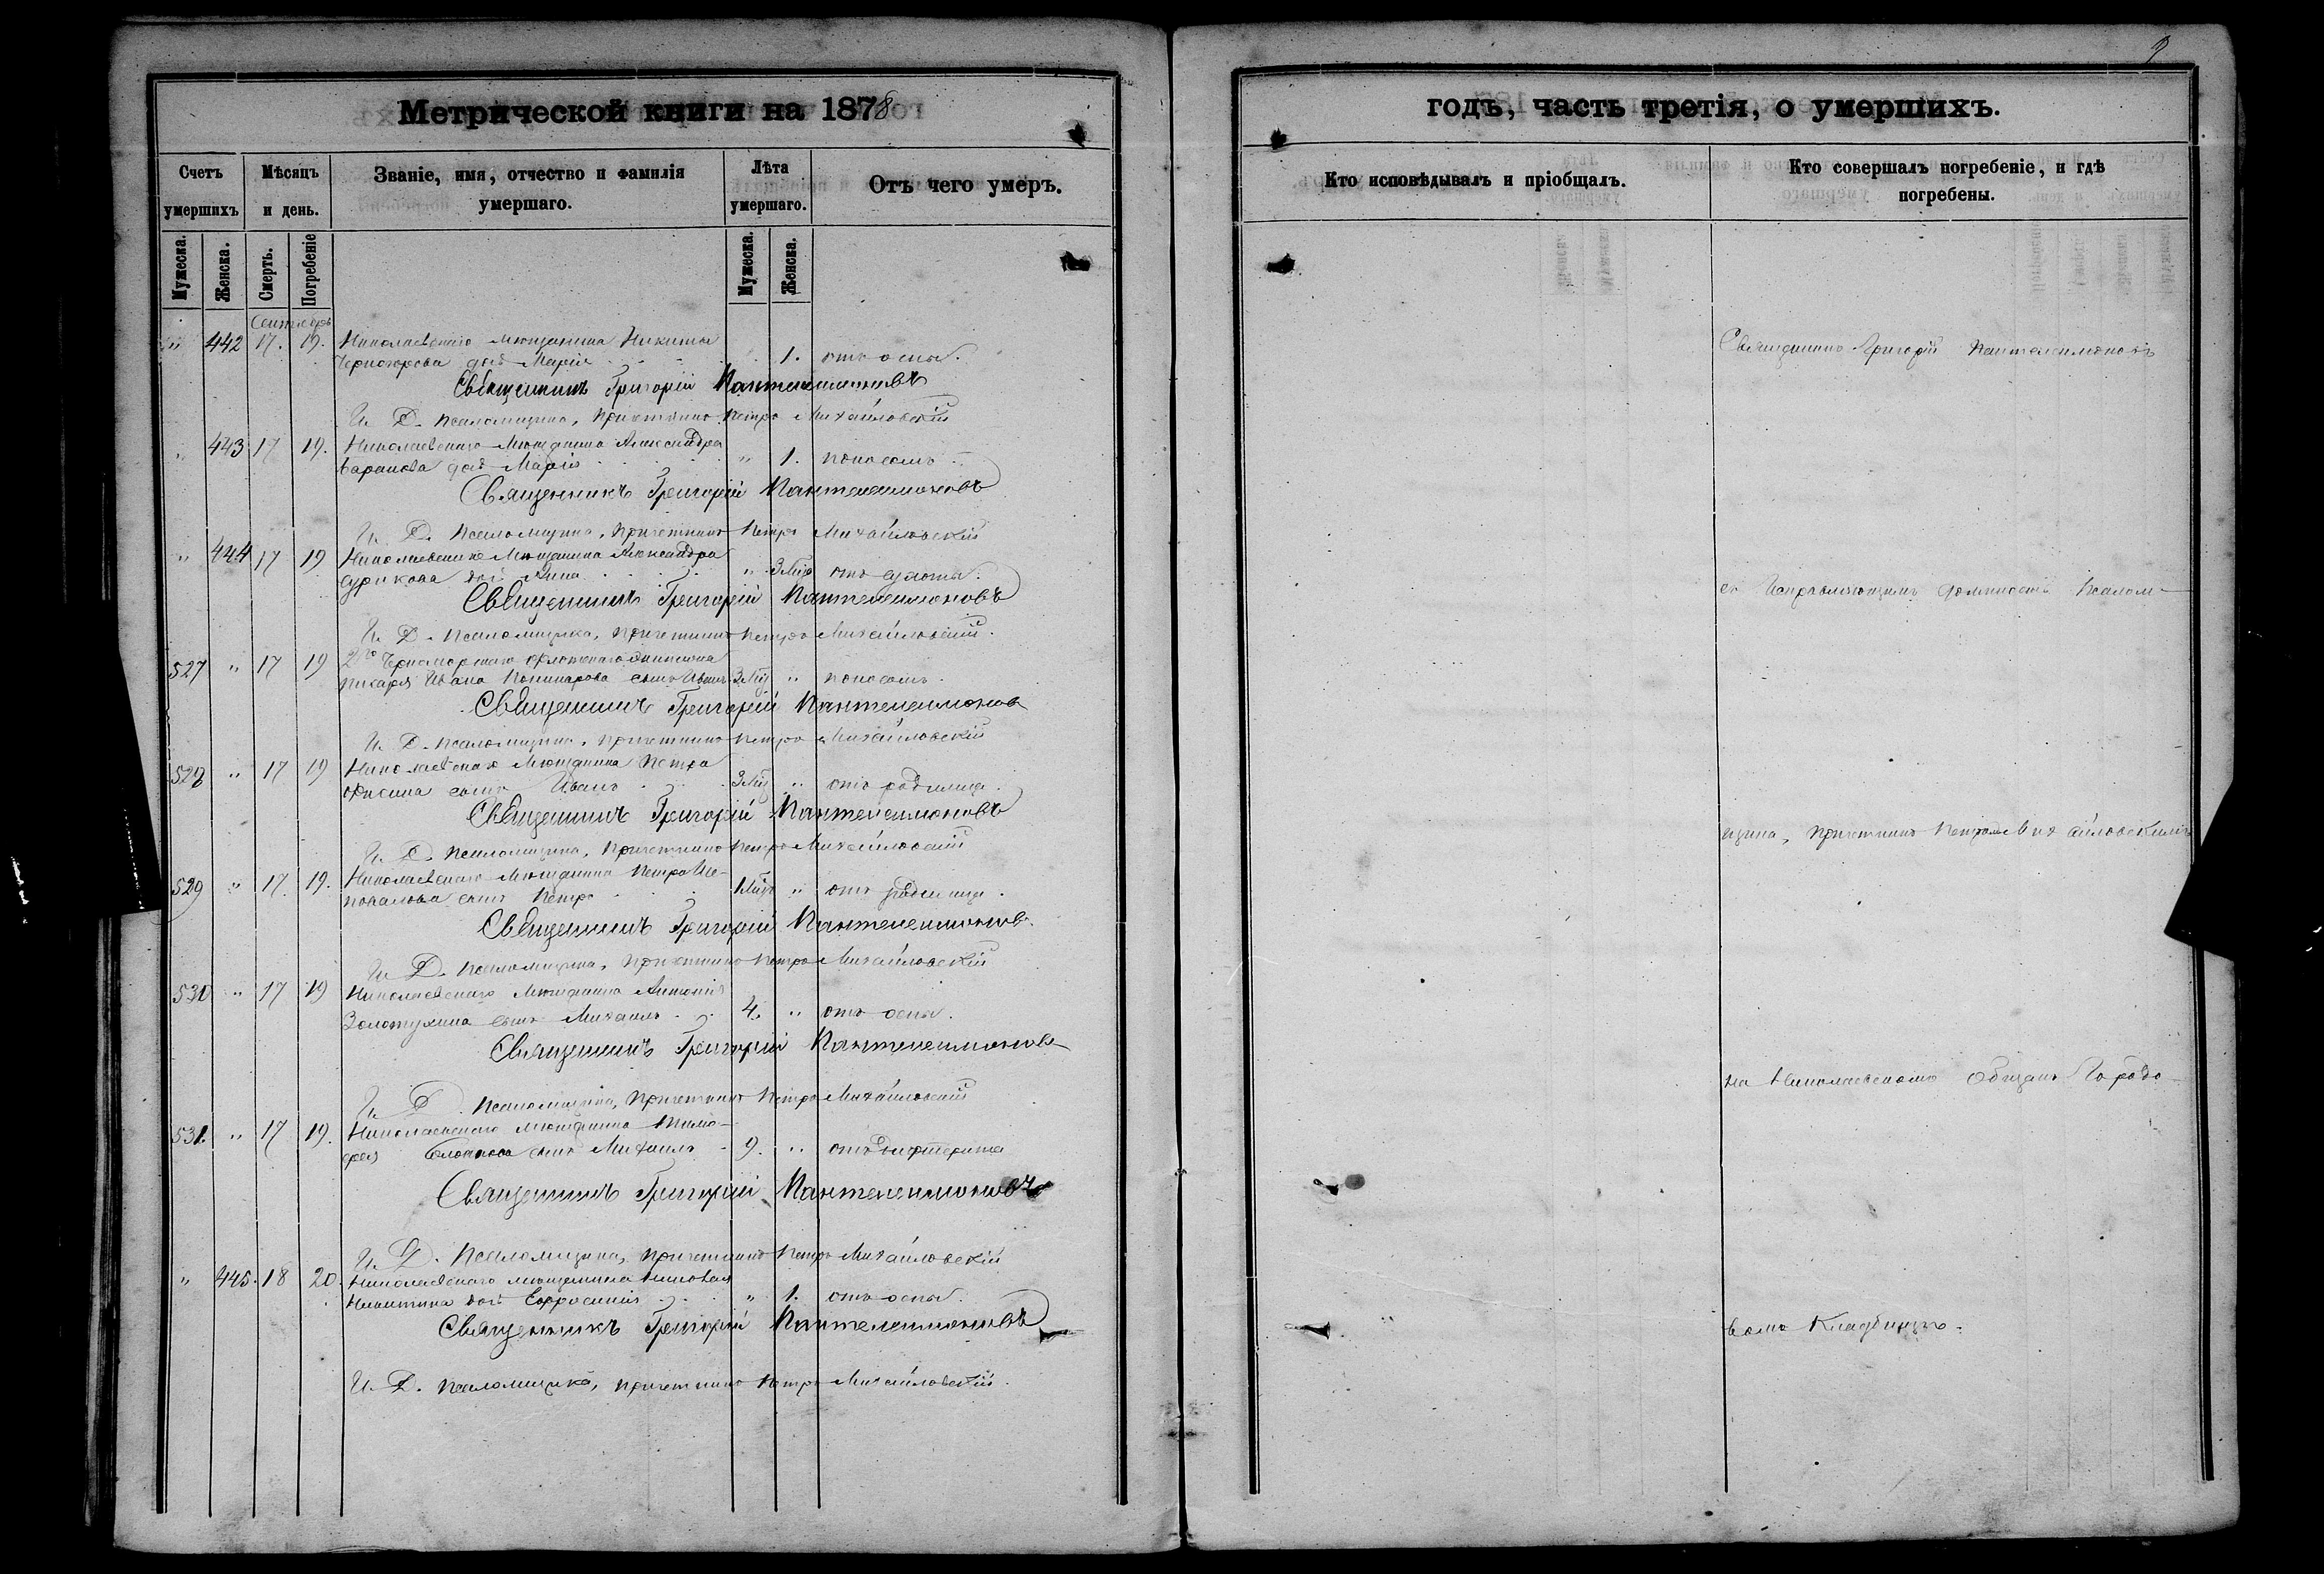 Метрической книги на 1878
Счетъ умершихъ
Мѣсяцъ и день.
Званіе, имя, отчество и фамилія умершаго.
Лѣта умершаго.
Отъ чего умеръ.
Мужеска. Женска. Смерть. Погребеніе Мужеска. Женска.
Сентябрь
" 442 17. 19. Николаевскаго мѣщанина Никиты
дочь Марія 1. отъ оспы.
Священникъ Григорій Пантелеимоновъ
И. Д. псаломщика, причетникъ Петръ Михайловскій
" 443 17 19. Николаевскаго мѣщанина Александра
Баранова дочь Марія " 1. поносомъ
Священникъ Григорій Пантелеимоновъ
И. Д. псаломщика, причетникъ Петръ Михайловскій
" 444 17 19 Николаевскаго мѣщанина Александра
Сурикова дочь " 3 мѣс
Священникъ Григорій Пантелеимоновъ
И. Д. псаломщика, причетникъ Петръ Михайловскій.
527 " 17 19 2го Черноморскаго флотскаго экипажа
писаря Ивана сынъ Иванъ 3 мѣс " поносомъ.
Священникъ Григорій Пантелеимоновъ
И. Д. псаломщика, причетникъ Петръ Михайловскій
528 " 17 19 Николаевскаго мѣщанина Петра
сынъ Иванъ 3 мѣс " отъ родимца.
Священникъ Григорій Пантелеимоновъ
И. Д. псаломщика, причетникъ Петръ Михайловскій
529 " 17. 19. Николаевскаго мѣщанина Петра
сынъ Петръ 1 мѣс " отъ родимца.
Священникъ Григорій Пантелеимоновъ.
И. Д. псаломщика, причетникъ Петръ Михайловскій
530 " 17 19 Николаевскаго мѣщанина Антонія
Золотухина сынъ Михаилъ 4. " отъ оспы.
Священникъ Григорій Пантелеимоновъ
И. Д. псаломщика, причетникъ Петръ Михайловскій
531. " 17 19. Николаевскаго мѣщанина Тимо-
фея сынъ Михаилъ 9. " отъ дифтерита
Священникъ Григорій Пантелеимоновъ
И. Д. псаломщика, причетникъ Петръ Михайловскій
" 445. 18 20. Николаевскаго мѣщанина Николая
Никитина дочь Евфросинія " 1. отъ оспы.
Священникъ Григорій Пантелеимоновъ
И. Д. псаломщика, причетникъ Петръ Михайловскій.
9
годъ, часть третія, о умершихъ.
Кто исповѣдывалъ и пріобщалъ.
Кто совершалъ погребеніе, и гдѣ погребены.
Священникъ Григорій Пантелеимоновъ
съ Исправляющимъ должность Псалом-
щика, причетникъ Петромъ Михайловскимъ
на Николаевскомъ Общемъ Городо-
вомъ Кладбищѣ.